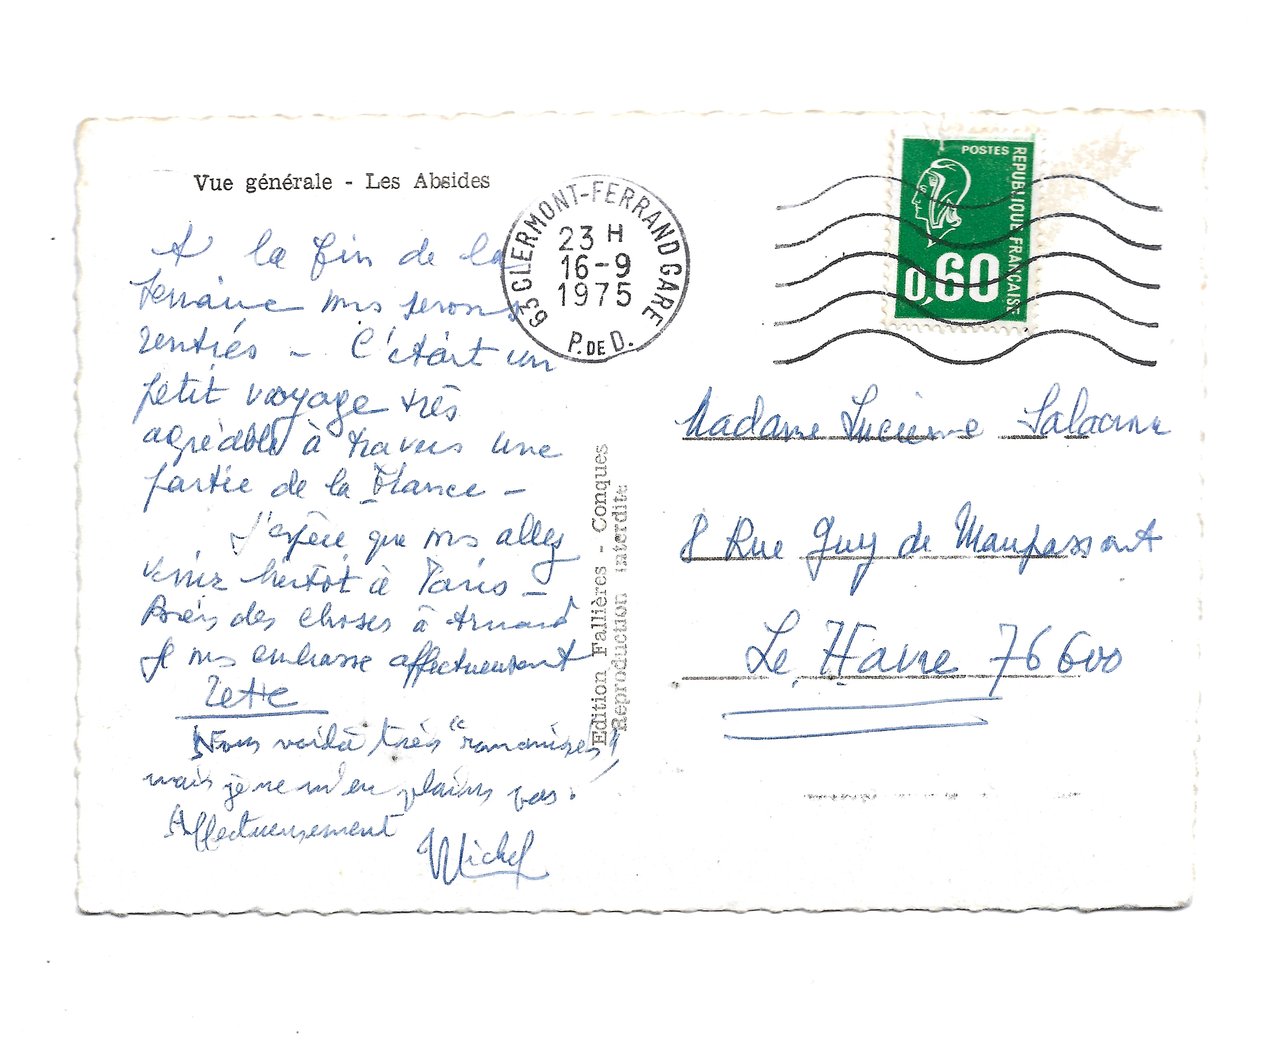 Vue générale - Les Absides
A la fin de la
semaine ns serons
rentrés - C'était un
petit voyage très
agréable à travers une
partie de la France -
J'espère que vs allez
venir bientôt à Paris -
Bien des choses à Armand
Je vs embrasse affectueusement
Zette
Nous voilà très "romanisés"!
mais je ne m'en plains pas.
Affectueusement
Michel
Edition Fallières - Conques
Reproduction interdite
63 CLERMONT-FERRAND GARE
23 H
16-9
1975
P. DE D.
POSTES
REPUBLIQUE FRANÇAISE
0,60
Madame Lucienne Salacrou
8 Rue Guy de Maupassant
Le Havre 76600